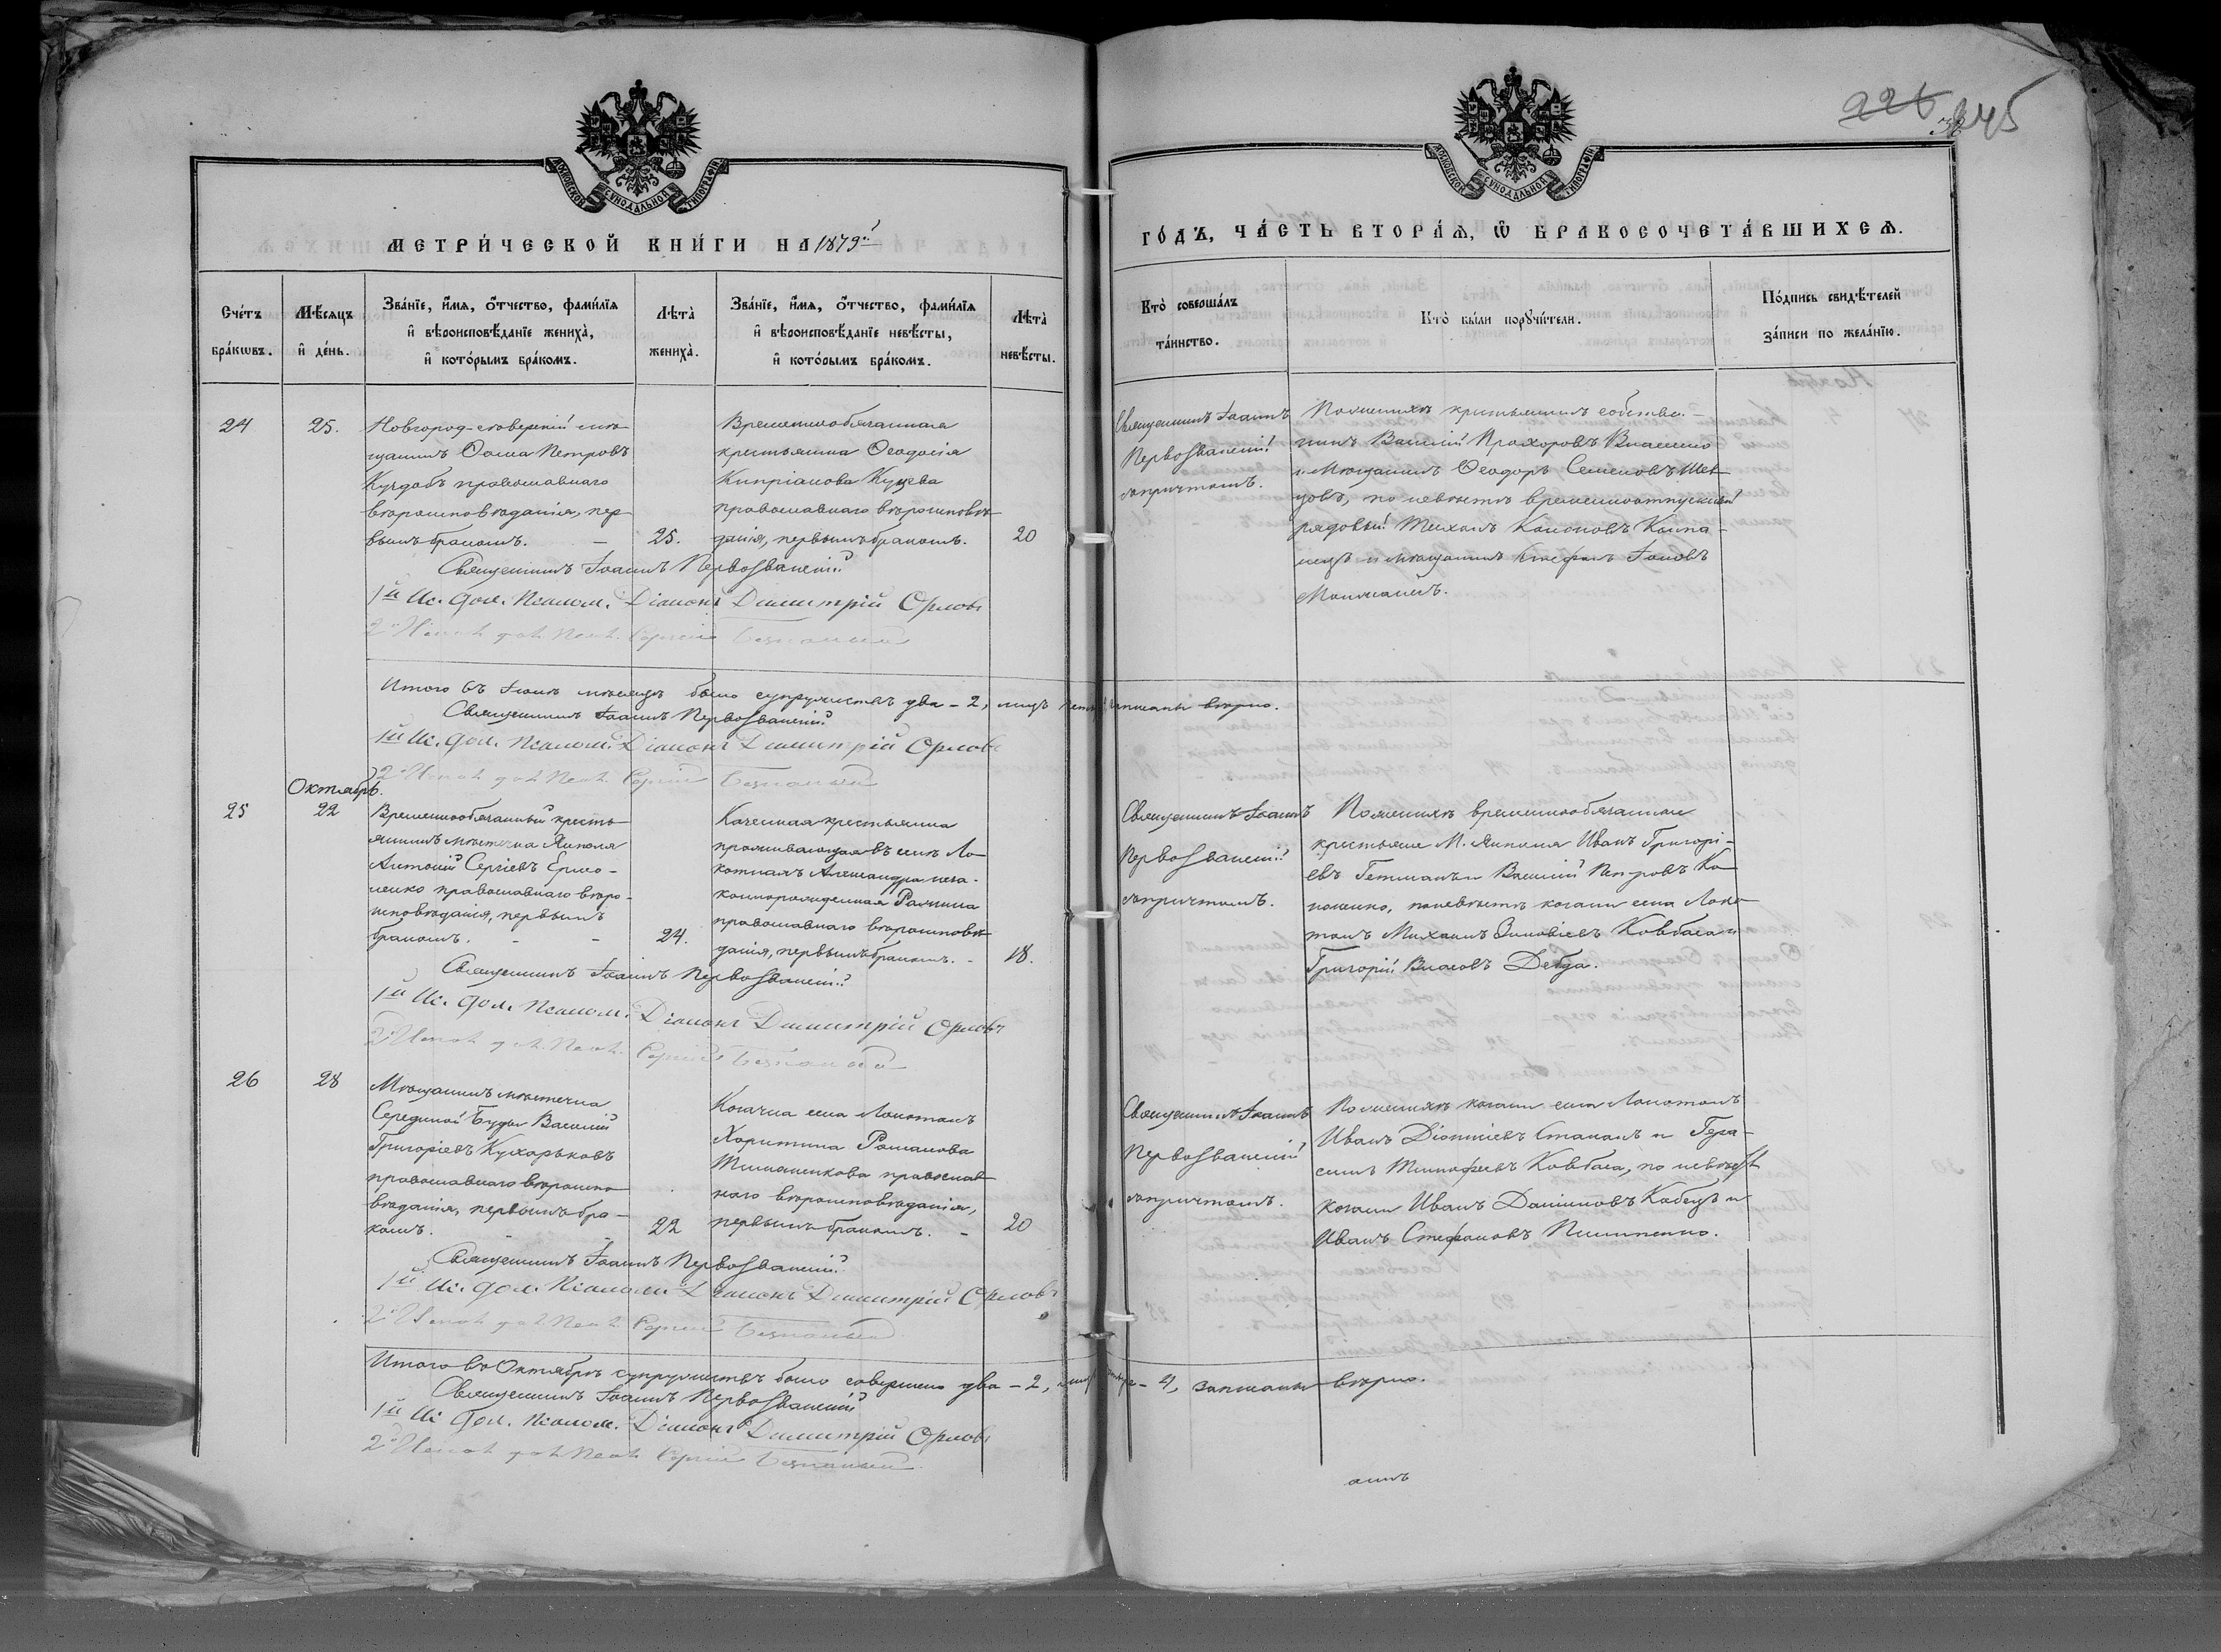 226
245
МОСКОВСКОЙ СУНОДАЛЬНОЙ ТИПОГРАФІИ
МОСКОВСКОЙ СУНОДАЛЬНОЙ ТИПОГРАФІИ
МЕТРИ́ЧЕСКОЙ КНИ́ГИ НА 1879й
ГО́ДЪ, ЧА́СТЬ ВТОРА́Я, Ѽ БРАКОСОЧЕТА́ВШИХСЯ.
Сче́тъ бра́кѡвъ.
Мѣ́сяцъ и҆ де́нь.
Зва́нїе, и҆́мя, ѻ҆́тчество, фами́лїя
и҆ вѣроисповѣ́данїе жениха̀,
и҆ кото́рымъ бра́комъ.
Лѣта̀ жениха̀.
Зва́нїе, и҆́мя, ѻ҆́тчество, фами́лїя
и҆ вѣроисповѣ́данїе невѣ́сты,
и҆ кото́рымъ бра́комъ.
Лѣта̀ невѣ́сты.
Кто̀ соверша́лъ
та́инство.
Кто̀ бы́ли порꙋчи́тели.
По́дпись свидѣ́телей
за́писи по жела́нїю.
24
25.
Новгород-сѣверскій мѣ-
щанинъ Ѳома Петровъ
православнаго
вѣроисповѣданія, пер-
вымъ бракомъ. –
25.
Временнообязанная
крестьянка Ѳеодосія
Кипріанова Куцева
православнаго вѣроисповѣ-
данія, первымъ бракомъ.
20
Священникъ Іоаннъ
Первозванскій
съ причтомъ.
По женихѣ крестьянинъ собствен-
никъ Василій Прохоровъ Власенко
и мѣщанинъ Ѳеодоръ Семеновъ Шев-
цовъ, по невѣстѣ временноотпускной
рядовый Тихонъ Кононовъ Компа-
нецъ и мѣщанинъ Стефанъ Іоновъ
Священникъ Іоаннъ Первозванскій
1й Ис. дол. Псалом. Діаконъ Димитрій Орловъ
2й Испол. дол. Псал. Сергій
Итого въ Іюлѣ мѣсяцѣ было супружествъ два – 2, лицъ записаны вѣрно.
Священникъ Іоаннъ Первозванскій
1й Ис. дол. Псалом. Діаконъ Димитрій Орловъ
2й Испол. дол. Псал. Сергій
Октябрь.
25
22
Временнообязанный кресть-
янинъ мѣстечка Ямполя
Антоній Сергіевъ Ермо-
ленко православнаго вѣро-
исповѣданія, первымъ
бракомъ. – –
24.
Казенная крестьянка
проживающая въ селѣ Ло-
коткахъ Александра неза-
коннорожденная
православнаго вѣроисповѣ-
данія, первымъ бракомъ. –
18.
Священникъ Іоаннъ
Первозванскій
съ причтомъ.
По женихѣ временнообязанные
крестьяне М. Ямполя Иванъ Григорі-
евъ Гетманъ и Василій Петровъ Ко-
ноненко, по невѣстѣ козаки села Локо-
токъ Михаилъ Зиновіевъ Ковбаса и
Григорій Власовъ Дегда.
Священникъ Іоаннъ Первозванскій
1й Ис. дол. Псалом. Діаконъ Димитрій Орловъ
2й Испол. дол. Псал. Сергій
26
28
Мѣщанинъ мѣстечка
Середина Буды Василій
Григоріевъ Кухарьковъ
православнаго вѣроиспо-
вѣданія, первымъ бра-
комъ. – –
22
Козачка села Локотокъ
Харитина Романова
Тимошенкова православ-
наго вѣроисповѣданія,
первымъ бракомъ. –
20
Священникъ Іоаннъ
Первозванскій
съ причтомъ.
По женихѣ козаки села Локотокъ
Иванъ Діонисіевъ Стаканъ и Гера-
симъ Тимофеевъ Ковбаса, по невѣстѣ
козаки Иванъ Даниловъ Кабецъ и
Иванъ Стефановъ Пилипенко.
Священникъ Іоаннъ Первозванскій
1й Ис. дол. Псалом. Діаконъ Димитрій Орловъ
2й Испол. дол. Псал. Сергій
Итого въ Октябрѣ супружествъ было совершено два – 2, лицъ – 4, записаны вѣрно.
Священникъ Іоаннъ Первозванскій
1й Ис. дол. Псалом. Діаконъ Димитрій Орловъ
2й Испол. дол. Псал. Сергій